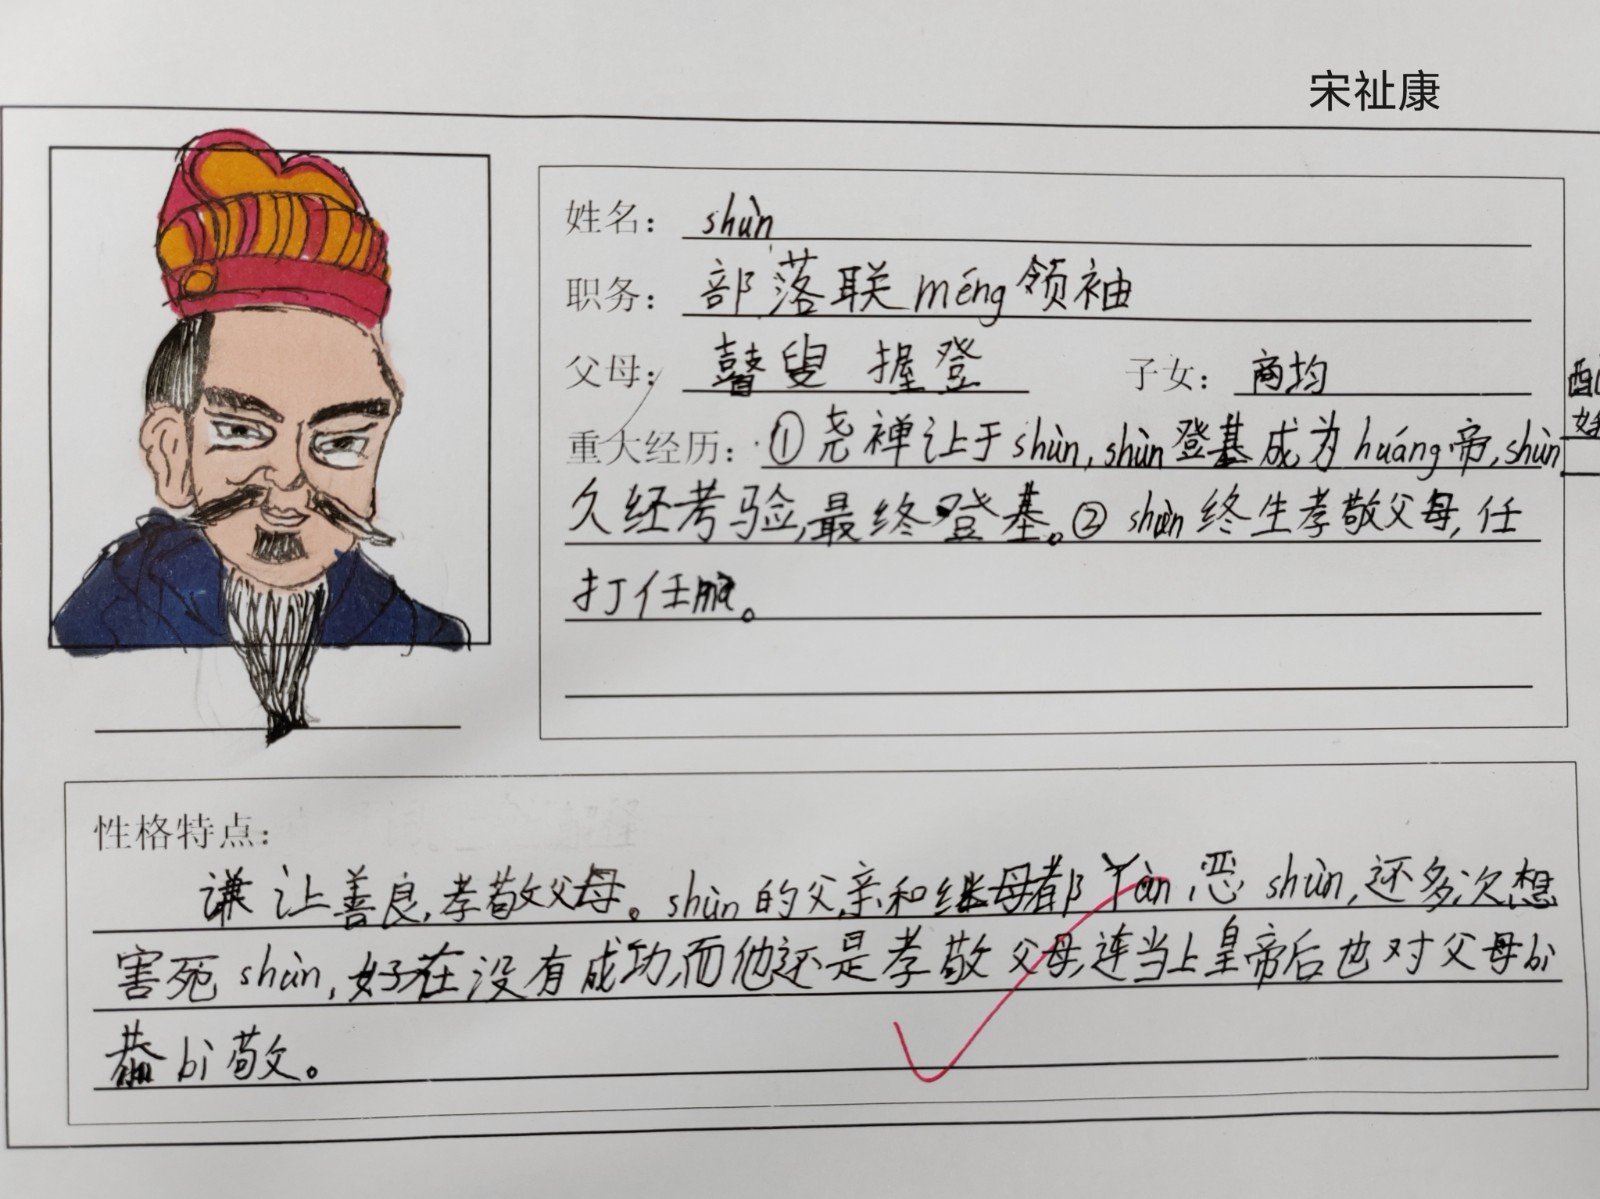 宋祉康
姓名： shùn
职务： 部落联méng领袖
父母： 瞽叟 握登 子女： 商均
重大经历： ①尧禅让于shùn,shùn登基成为huáng帝,shùn
久经考验,最终登基。② shùn终生孝敬父母,任
打任
性格特点：
谦让善良,孝敬父母。shùn的父亲和继母都 恶 shùn,还多次想
害死 shùn,好在没有成功,而他还是孝敬父母,连当上皇帝后也对父母bì
恭bì敬。